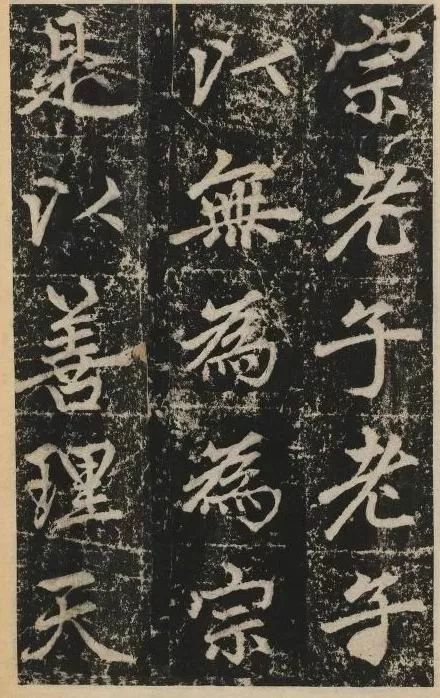 宗老子老子
以無為為宗
是以善理天